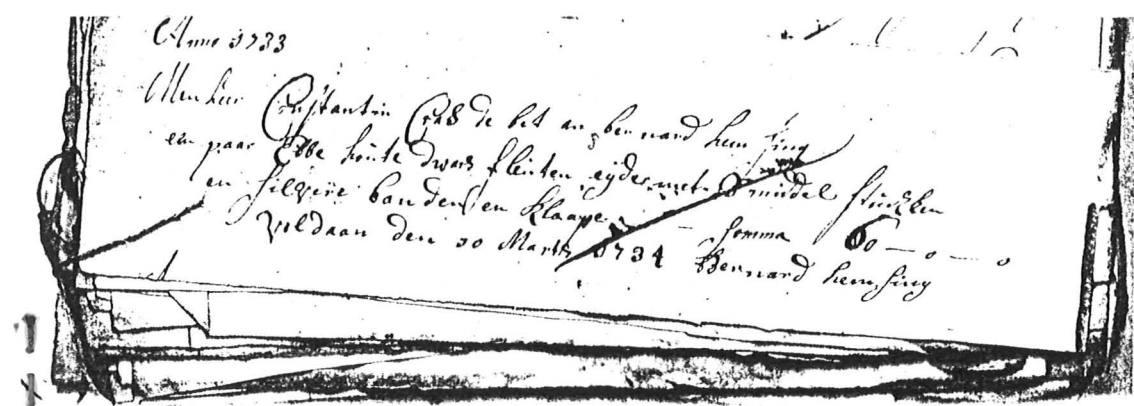 Anno 1733
Men heer Constantin Cras de bit an bernard hemsing
een paar Ebbe houte dwars fleuten eyder met 3 middel stucken
en silvere banden en klaape - somma 60 — o — o
voldaan den 10 Marti 1734 Bernard hemsing